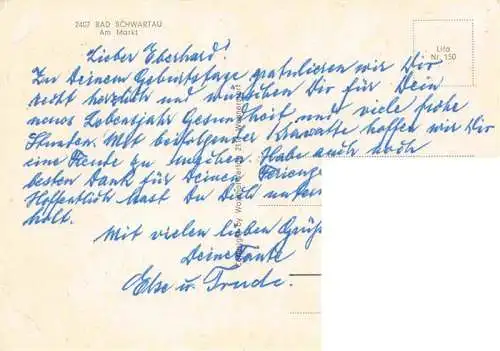 2407 BAD SCHWARTAU
Am Markt
Lifa
Nr. 150
Lieber Eberhard!
Zu Deinem Geburtstage gratulieren wir Dir
recht herzlich und wünschen Dir für Dein
neues Lebensjahr Gesundheit und viele frohe
Stunden. Mit beifolgender Krawatte hoffen wir Dir
eine Freude zu machen. Habe auch noch
besten Dank für Deinen Ferieng
Hoffentlich hast Du Dich unter
holt.
Mit vielen lieben Grüß
Deine Tante
Else u. Trude.